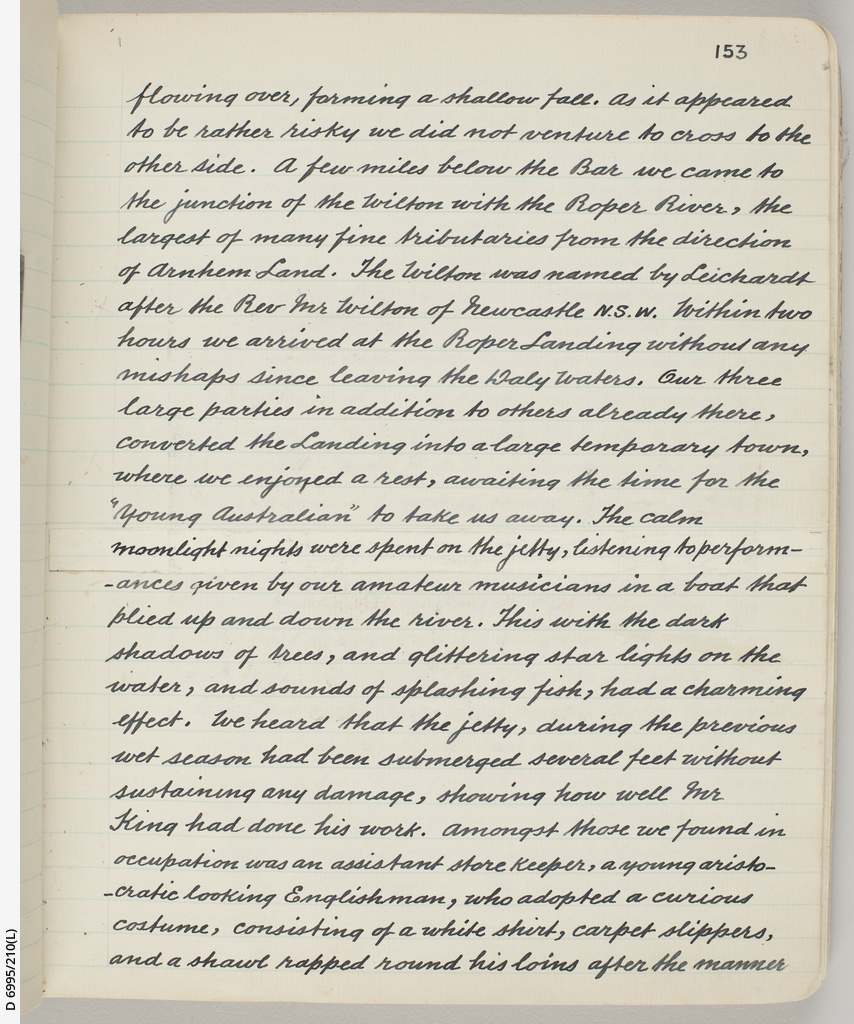 153
flowing over, forming a shallow fall. As it appeared
to be rather risky we did not venture to cross to the
other side. A few miles below the Bar we came to
the junction of the Wilton with the Roper River, the
largest of many fine tributaries from the direction
of Arnhem Land. The Wilton was named by Leichardt
after the Rev Mr Wilton of Newcastle N.S.W. Within two
hours we arrived at the Roper Landing without any
mishaps since leaving the Daly Waters. Our three
large parties in addition to others already there,
converted the Landing into a large temporary town,
where we enjoyed a rest, awaiting the time for the
"Young Australian" to take us away. The calm
moonlight nights were spent on the jetty, listening to perform-
-ances given by our amateur musicians in a boat that
plied up and down the river. This with the dark
shadows of trees, and glittering star lights on the
water, and sounds of splashing fish, had a charming
effect. We heard that the jetty, during the previous
wet season had been submerged several feet without
sustaining any damage, showing how well Mr
King had done his work. Amongst those we found in
occupation was an assistant store keeper, a young aristo-
-cratic looking Englishman, who adopted a curious
costume, consisting of a white shirt, carpet slippers,
and a shawl rapped round his loins after the manner
D 6995/210(L)